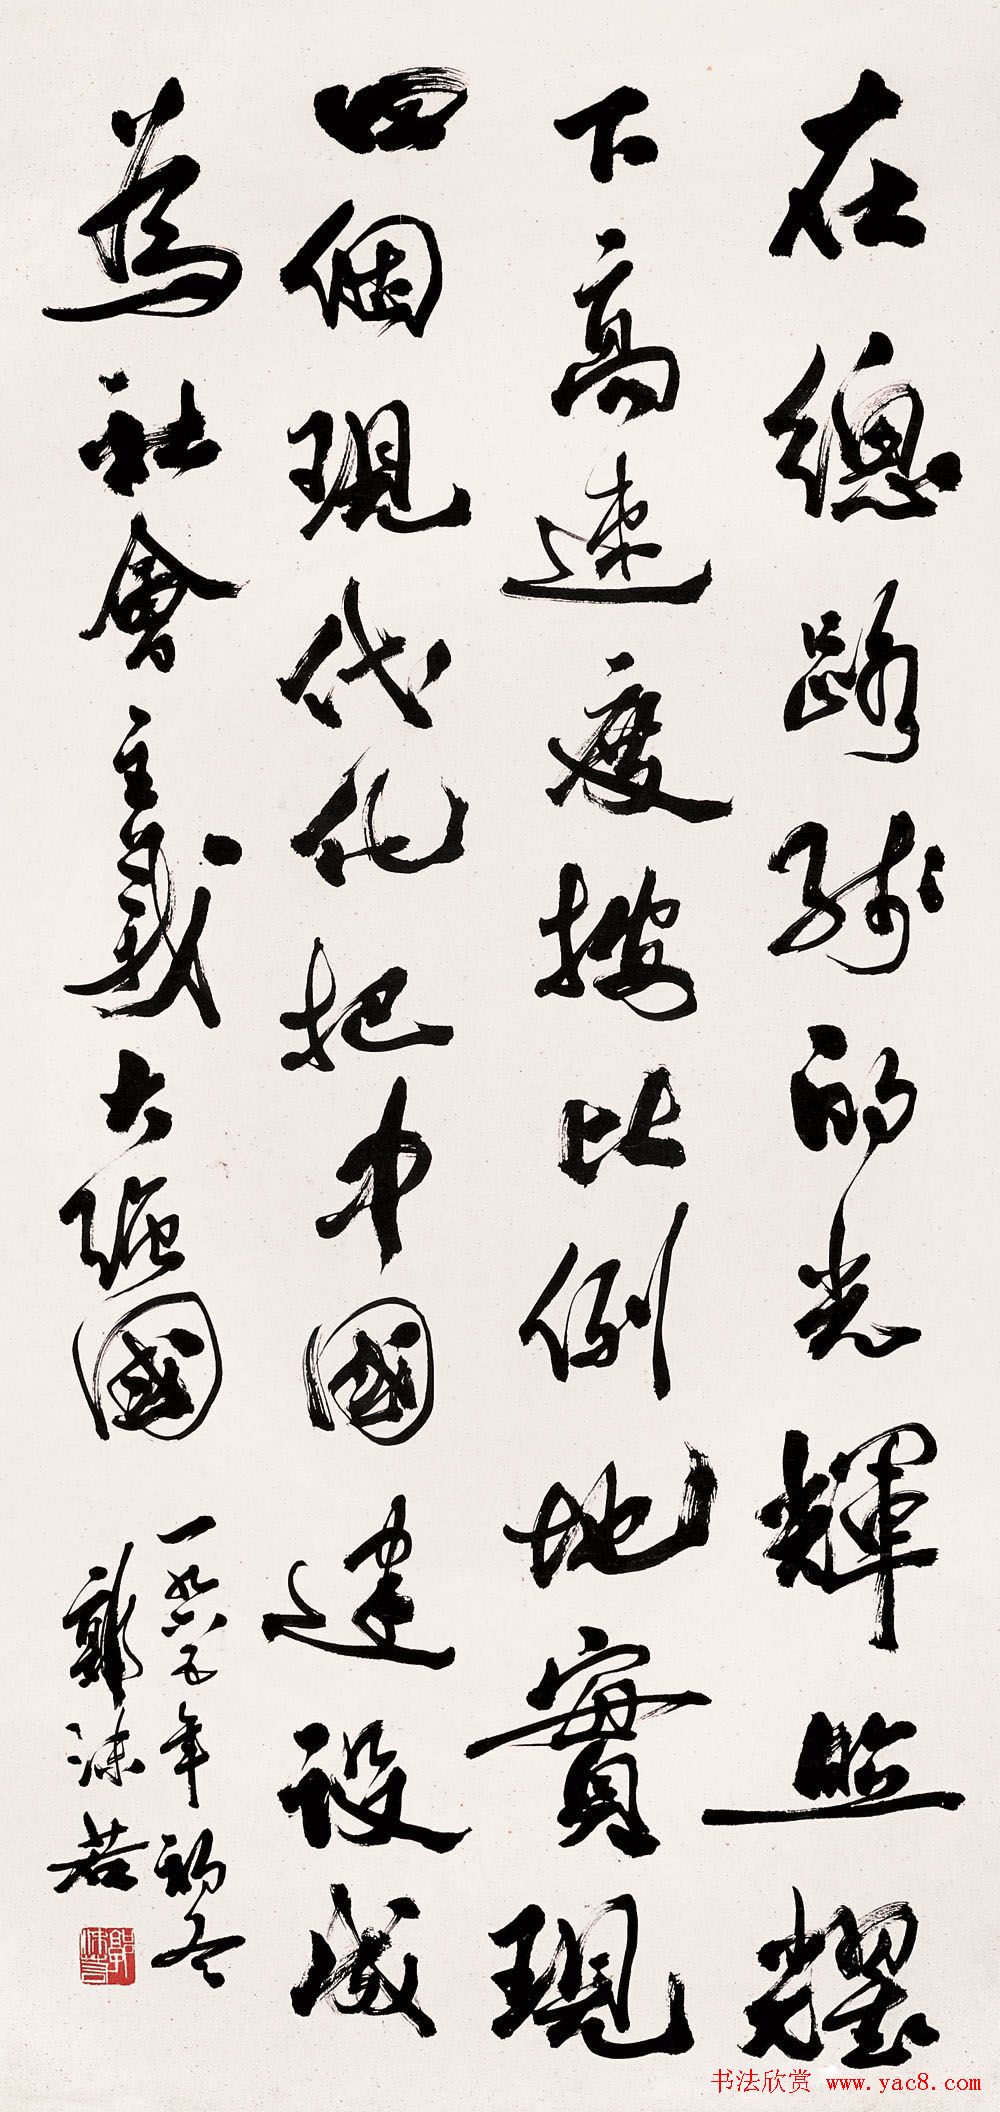 在總路线的光輝照耀
下高速度按比例地實現
四個現代化把中國建設成
為社會主義大強國
一九六五年初冬
郭沫若
郭沫若
书法欣赏 www.yac8.com